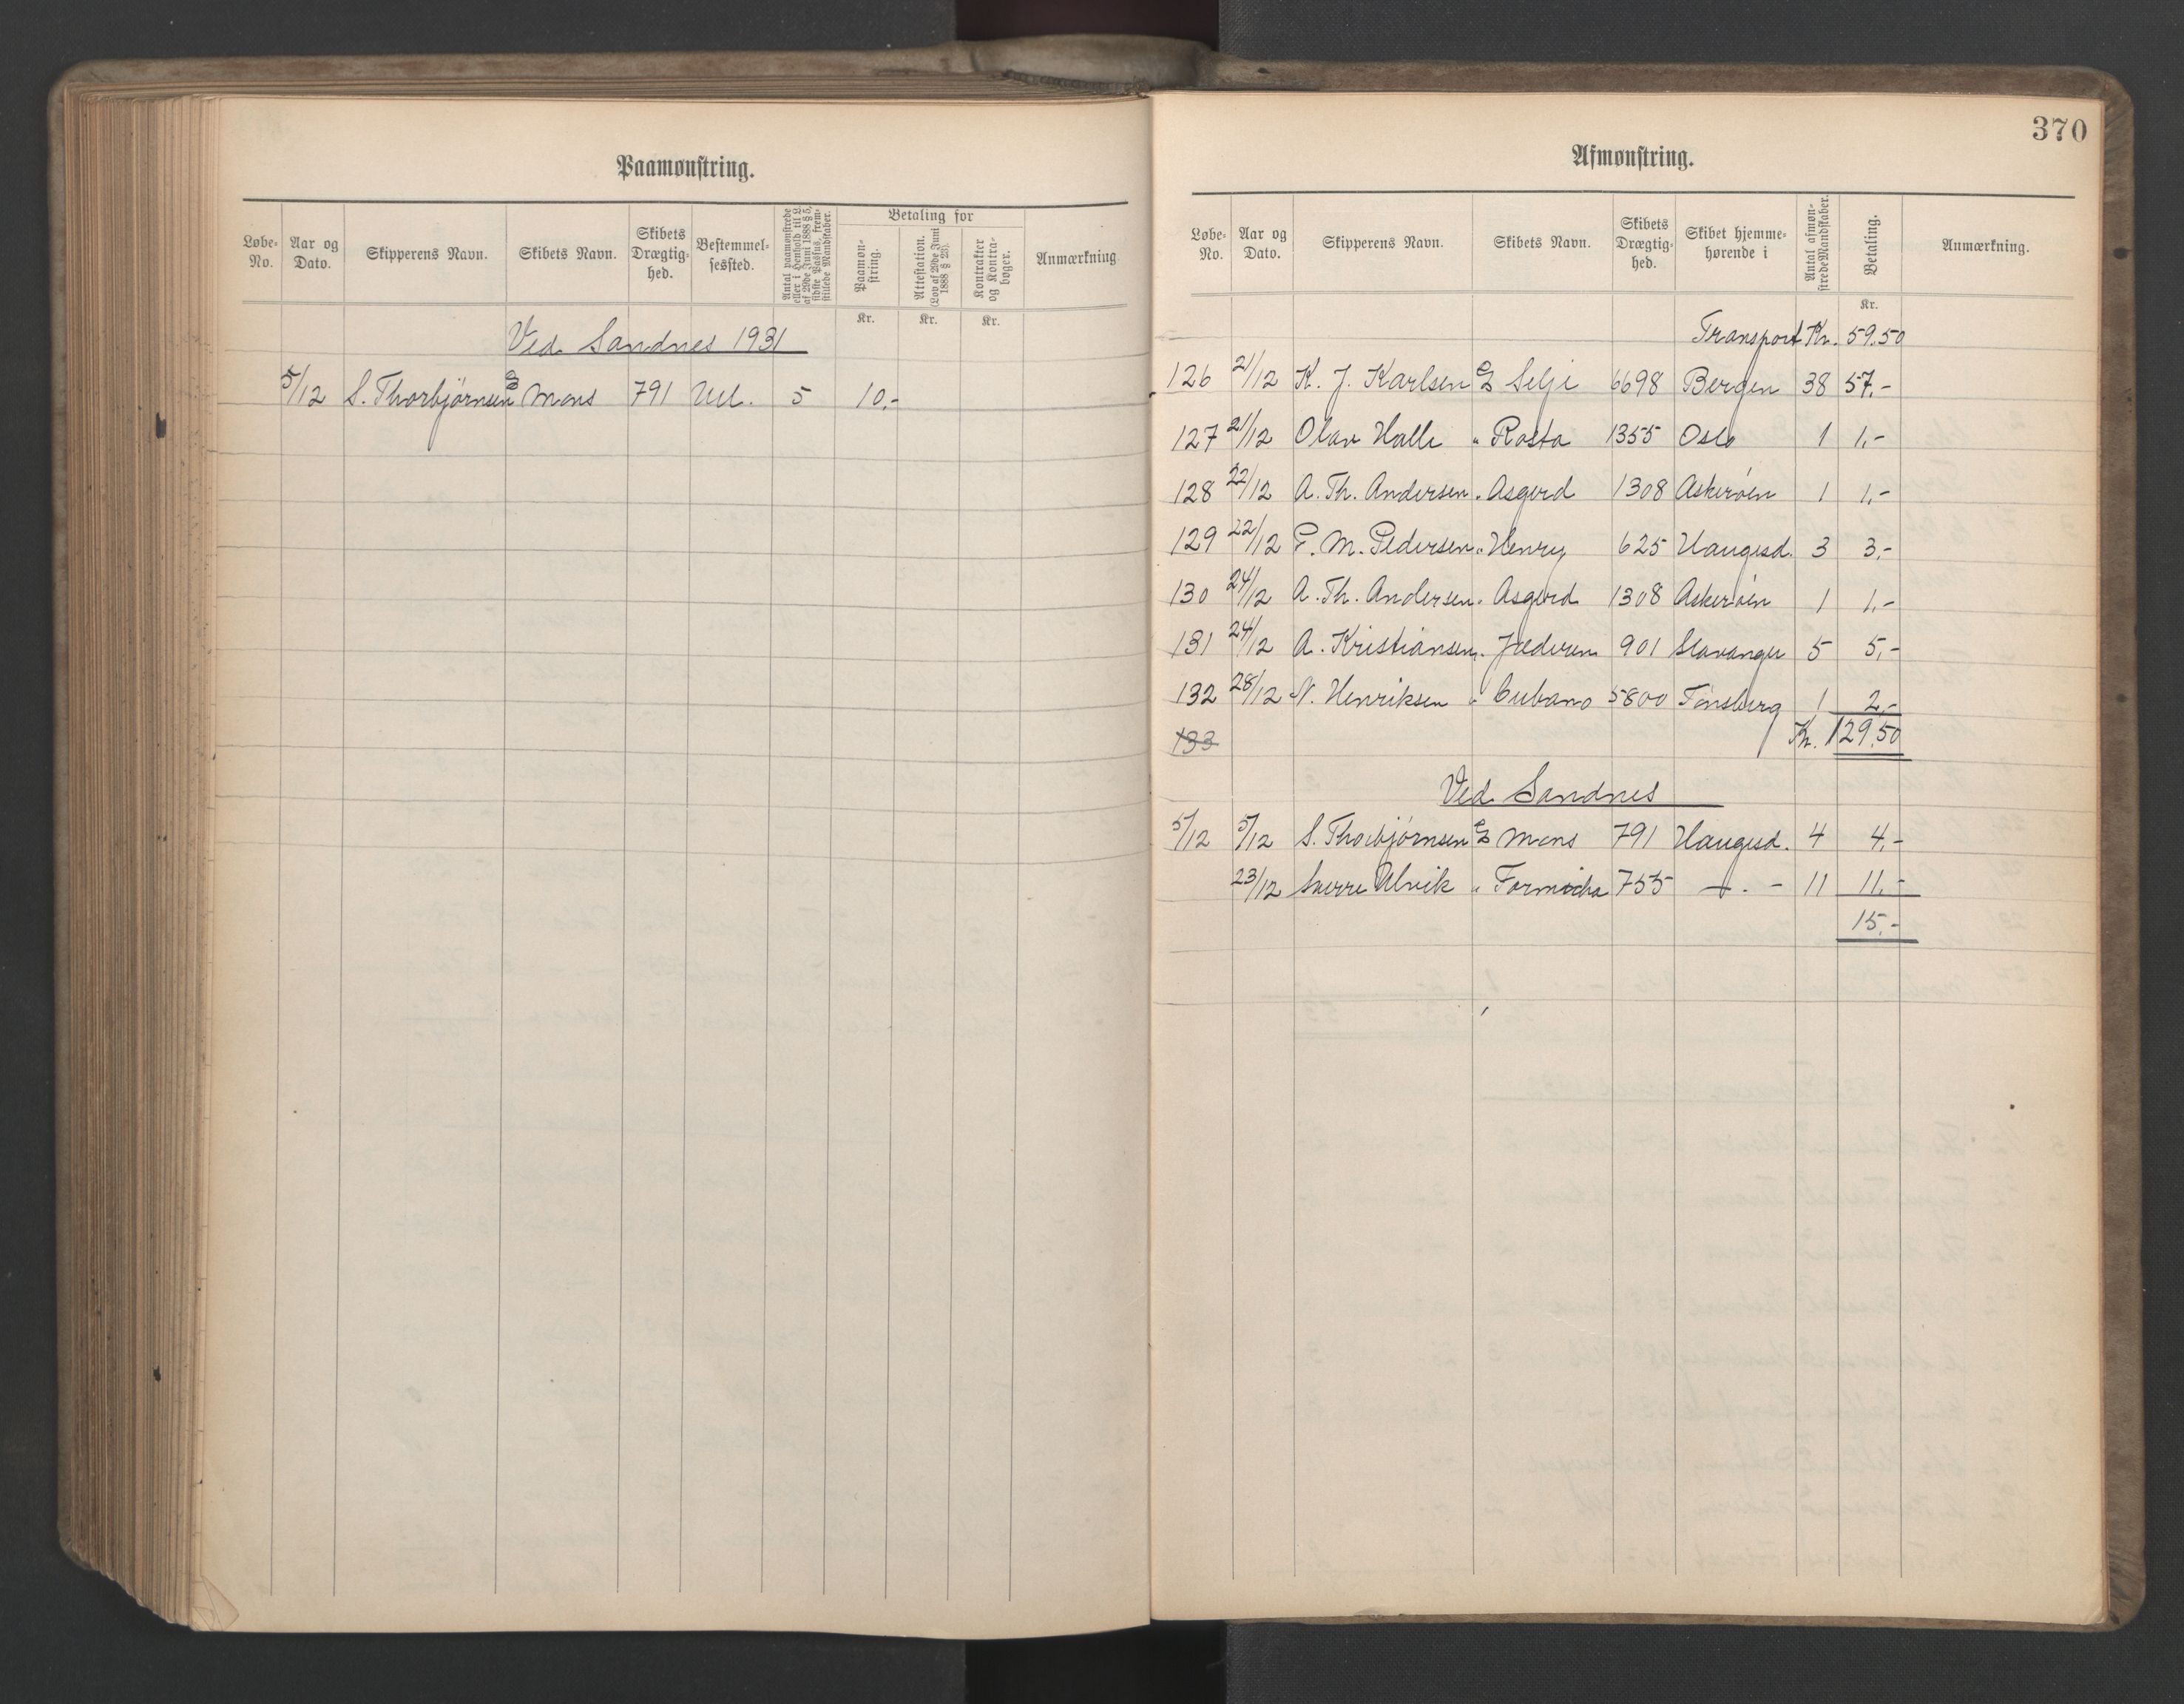 Paamønstring.
Løbe-No. Aar og Dato. Skipperens Navn. Skibets Navn. Skibets Drægtig-hed. Bestemmel-sessted. Antal paamønstrede eller i Henhold til L. af 29de Juni 1888 § 5, sidste Passus, frem-stillede Mandskaber. Betaling for Paamøn-string. Attestation. (Lov af 29de Juni 1888 § 23). Kontrakter og Kontra-bøger. Anmærkning.
Kr. Kr. Kr.
Ved Sandnes 1931
5/12 S. Thorbjørnsen Mons 791 Utl. 5 10,-
370
Afmønstring.
Løbe-No. Aar og Dato. Skipperens Navn. Skibets Navn. Skibets Drægtig-hed. Skibet hjemme-hørende i Antal afmøn-strede Mandskaber. Betaling. Anmærkning.
Kr.
Transport Kr. 59.50
126 21/12 K. J. Karlsen Selje 6698 Bergen 38 57,-
127 21/12 Olav Halle " Rosta 1355 Oslo 1 1,-
128 22/12 A. Th. Andersen " Asgerd 1308 Askerøen 1 1,-
129 22/12 P. M. Pedersen " Henry 625 Haugesd. 3 3,-
130 24/12 A. Th. Andersen " Asgerd 1308 Askerøen 1 1,-
131 24/12 A. Kristiansen " Jæderen 901 Stavanger 5 5,-
132 28/12 N. Henriksen " Cubano 5800 Tønsberg 1 2,-
133 Kr. 129.50
Ved Sandnes
5/12 5/12 S. Thorbjørnsen Mons 791 Haugesd. 4 4,-
23/12 Sverre Ulvik " Formica 755 -"- 11 11,-
15,-